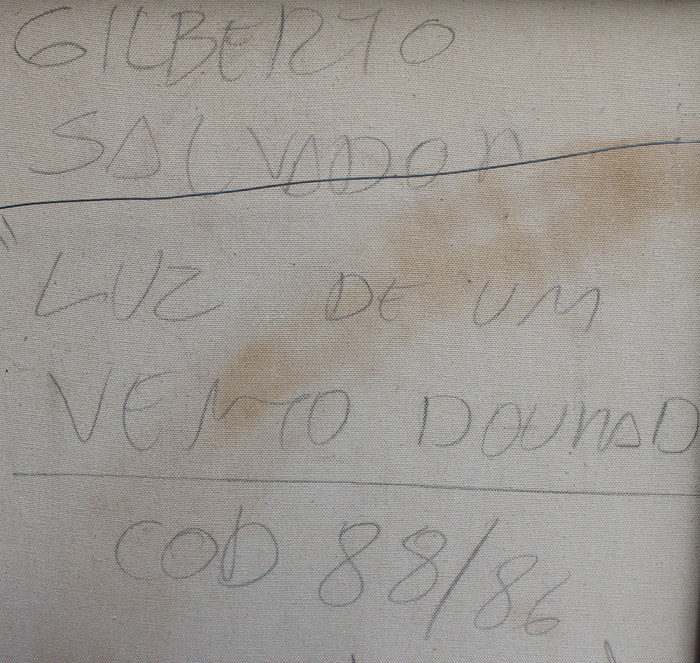 GILBERTO
SALVADOR
" LUZ DE UM
VENTO DOURAD
COD 88/86